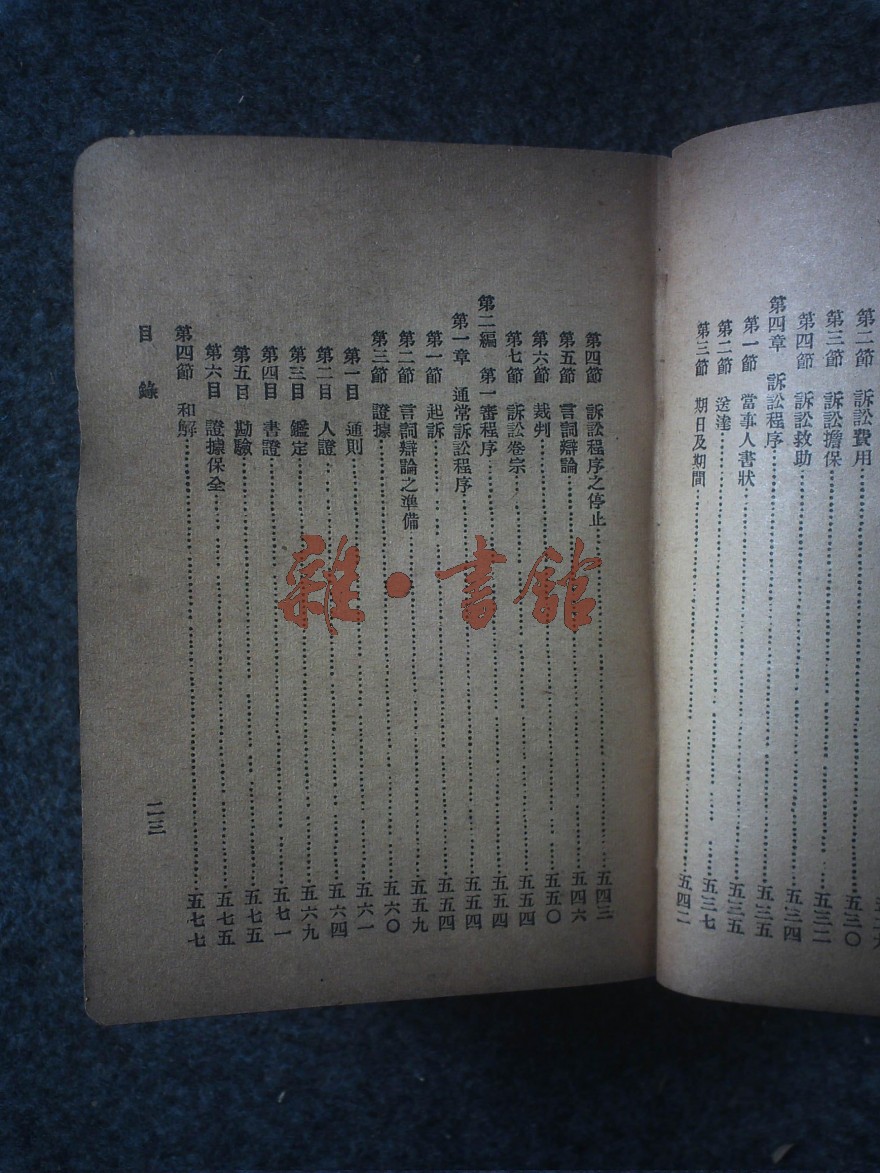 第二節　訴訟費用 五三〇
第三節　訴訟擔保 五三二
第四節　訴訟救助 五三四
第四章　訴訟程序 五三五
第一節　當事人書狀 五三五
第二節　送達 五三七
第三節　期日及期間 五四二
第四節　訴訟程序之停止 五四三
第五節　言詞辯論 五四六
第六節　裁判 五五〇
第七節　訴訟卷宗 五五四
第二編　第一審程序 五五四
第一章　通常訴訟程序 五五四
第一節　起訴 五五四
第二節　言詞辯論之準備 五五九
第三節　證據 五六〇
第一目　通則 五六一
第二目　人證 五六四
第三目　鑑定 五六九
第四目　書證 五七一
第五目　勘驗 五七五
第六目　證據保全 五七五
第四節　和解 五七七
目錄
二三
雜·書館